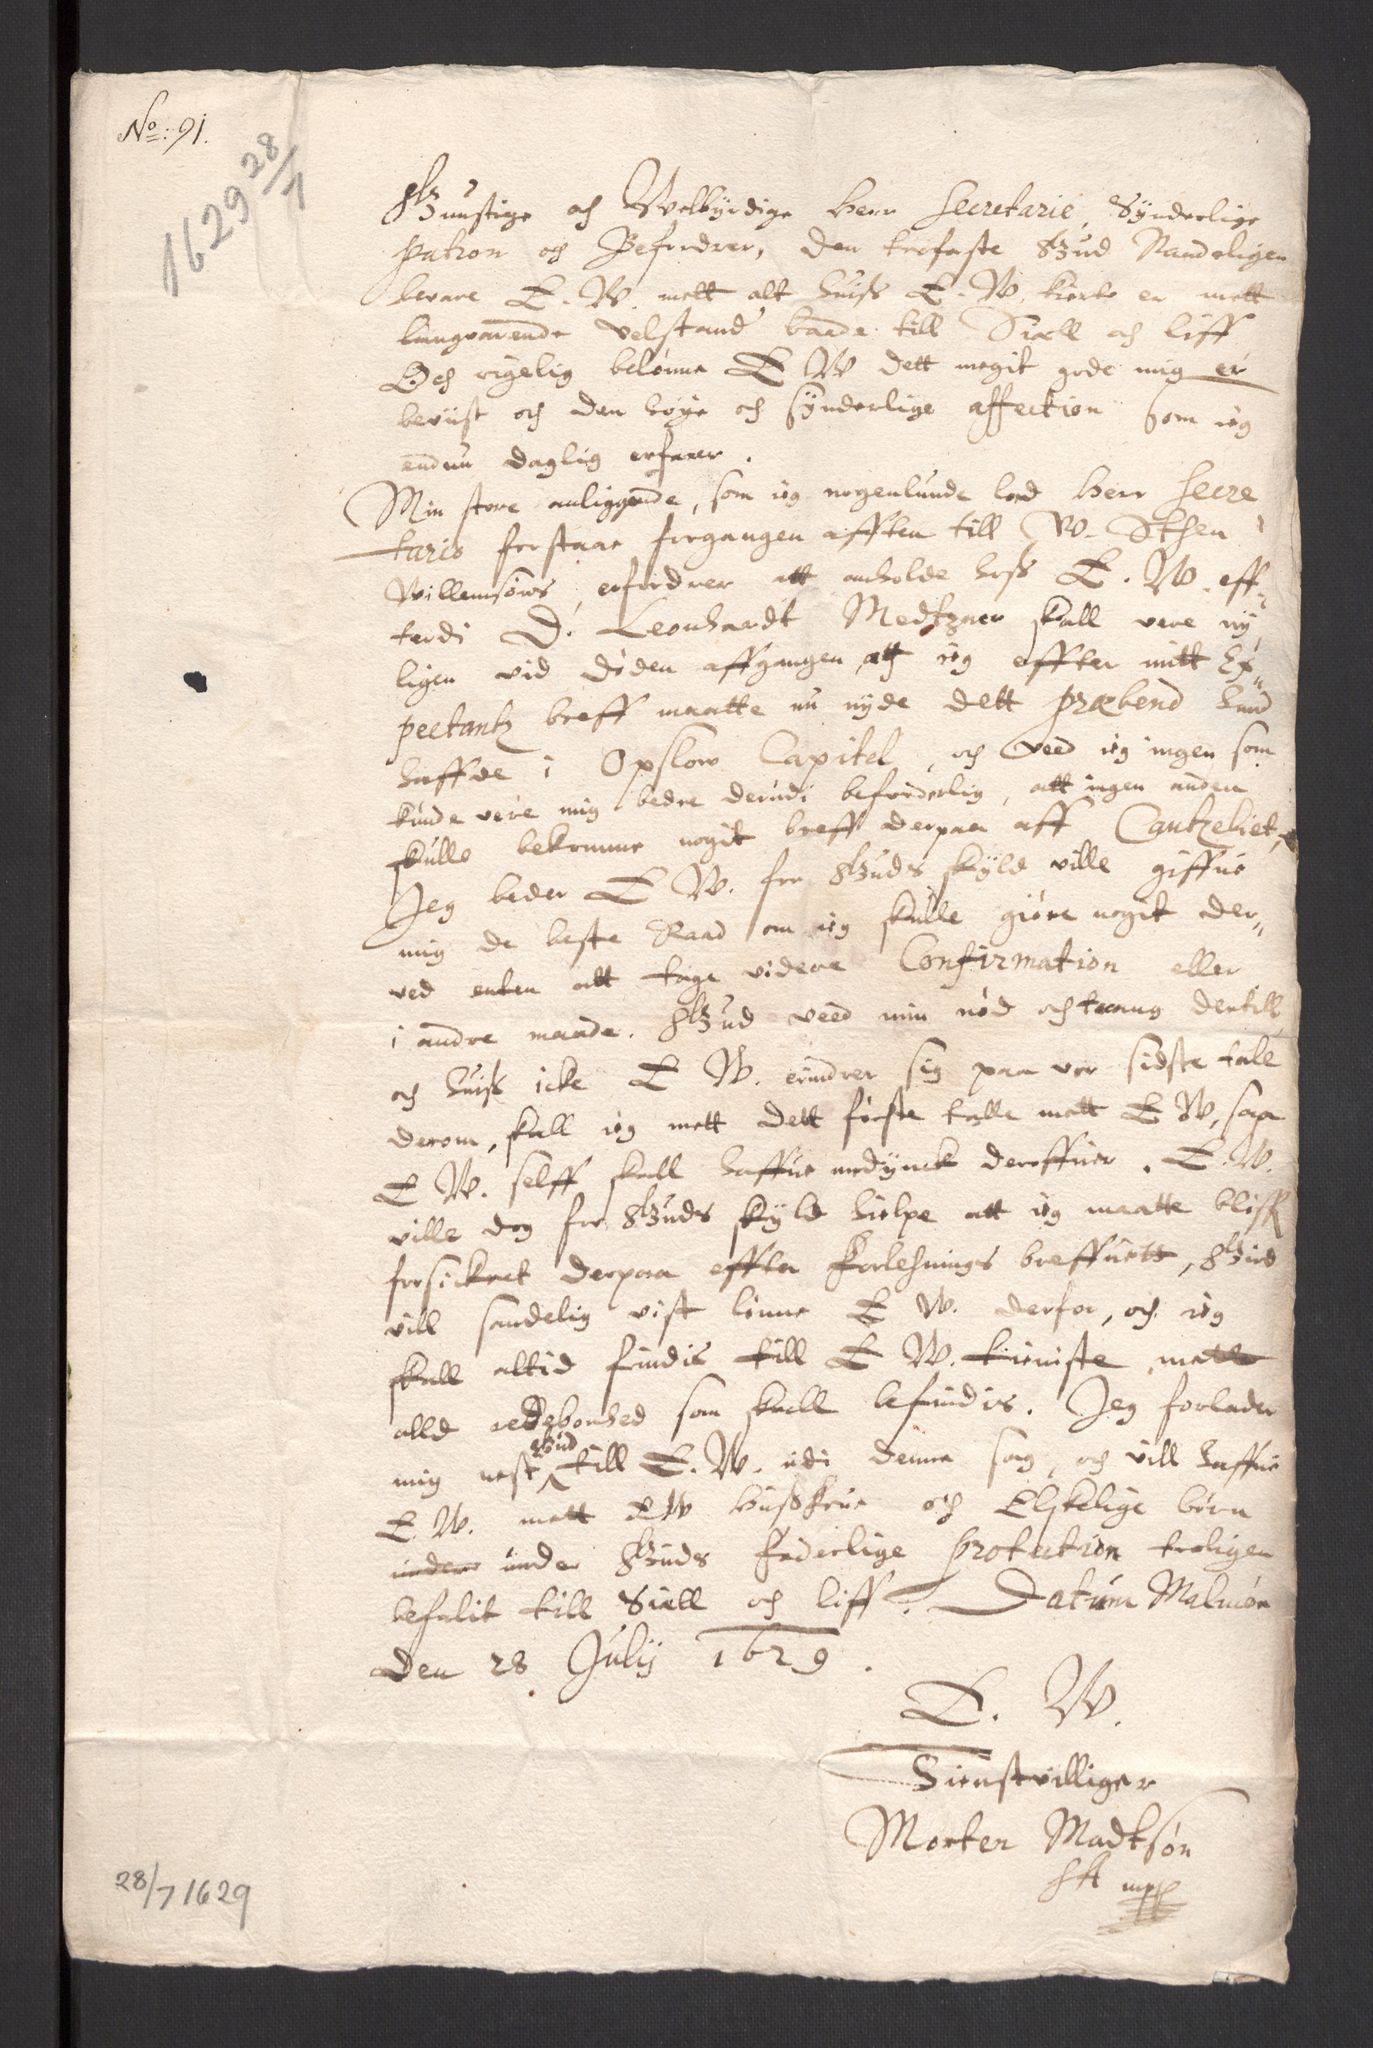 No: 91.
1629 28/7
Gunstige och Welbyrdige Herr Secretarie, Synderlige
Patron och Befordrer, den trofaste Gud Naadeligen
bevare E. W. mett alt huiss E. W. kiert er mett
langvarende velstand baade till Siæll och liff
Och rigelig belønne E W dett megit gode mig er
beviist och den høye och synderlige affection som ieg
endnu daglig erfarer.
Min store anliggende, som ieg nogenlunde lod Herr Secre
tario forstaae forgangen afften till W. Sthen
Willemsøns, erfordrer att anholde hoss E. W. eff-
terdi D. Leonhardt Medtzner skall vere ny
ligen vid døden affgangen, att ieg effter mitt Ex-
pectantz breff maatte nu nyde dett præbend hand
haffde i Opslow Capitel, och veed ieg ingen som
kunde vere mig bedre derudi beforderlig, att ingen anden
skulle bekomme nogit breff derpaa aff Cantzeliet,
Jeg beder E W. for Guds skyld ville giffue
mig de beste Raad om ieg skulle giøre nogit der-
ved enten att tage videre Confirmation eller
i andre maade. Gud veed min nød och trang dertill
och huiss icke E W. erindrer sig paa vor sidste tale
derom, skall ieg mett dett første talle mett E W, saa
E W. selff skall haffue medynck deroffuer. E. W.
ville dog for Guds skyld hielpe att ieg maatte bliffe
forsickret derpaa effter forlehnings breffuett, Gud
vill sandelig vist lønne E W. derfor, och ieg
skall altid findis till E W. tieniste mett
alld redebonhed som skall befindis. Jeg forlader
mig nest Gud till E. W. udi denne sag, och vill haffue
E. W. mett E W Hussfrue och Elskelige børn
under under Guds faderlige protection troligen
befalit till Siæll och liff. Datum Malmøe
den 28 Julij 1629.
E. W.
Tienstvilliger
Morten Madtsøn
mpp
28/7 1629